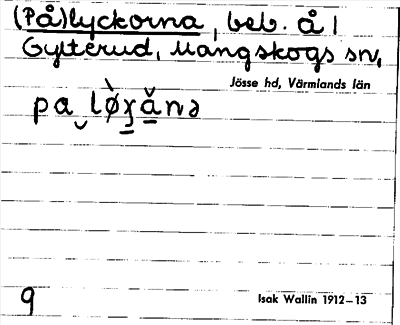 (På)lyckorna, beb. å /
Gylterud, Mangskogs sn,
Jösse hd, Värmlands län
pa lø̀ɣǎnə
9
Isak Wallin 1912–13